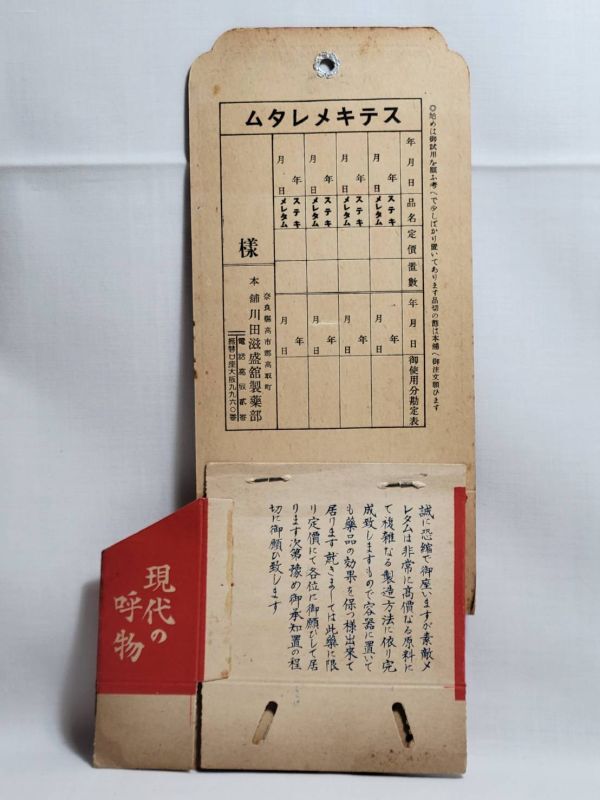 ステキメレタム
◎始めは御試用を願ふ考へで少しばかり置いてあります品切の節は本舗へ御注文願ひます
年月日
品名
定價
置數
年月日
御使用分勘定表
年月日
ステキメレタム
年月日
年月日
ステキメレタム
年月日
年月日
ステキメレタム
年月日
年月日
ステキメレタム
年月日
様
奈良縣高市郡高取町
本舗 川田滋盛舘製藥部
電話高取貳番
振替口座大阪九九六〇番
誠に恐縮で御座いますが素敵メ
レタムは非常に高價なる原料に
て複雑なる製造方法に依り完
成致しますもので容器に置いて
も藥品の効果を保つ様出來て
居ります就きましては此藥に限
り定價にて各位に御願ひして居
ります次第豫め御承知置の程
切に御願ひ致します
現代の
呼物